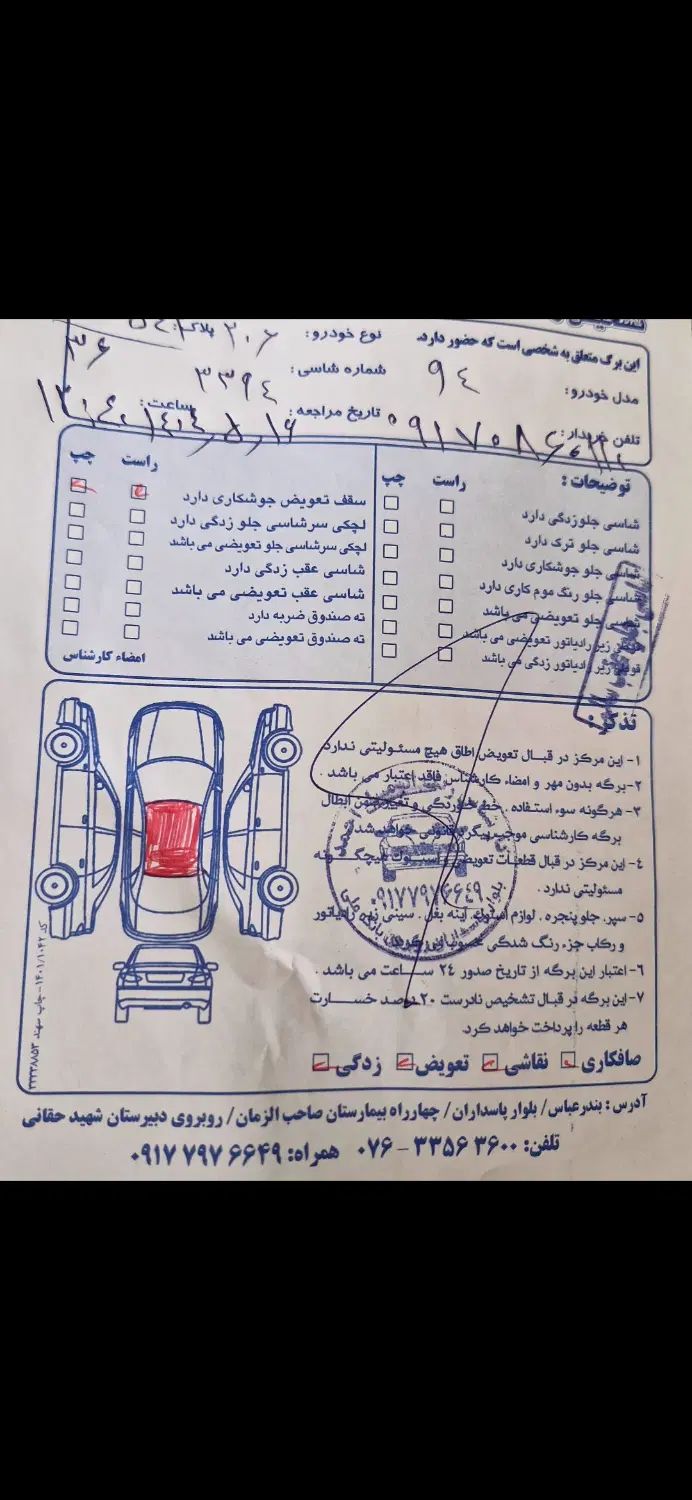 این برگ متعلق به شخصی است که حضور دارد.
نوع خودرو: ۲۰۶ پلاک:
مدل خودرو: ۹۴ شماره شاسی: ۳۳۹۴ ۳۶
تلفن خریدار: تاریخ مراجعه: ساعت:
توضیحات: راست چپ
شاسی جلوزدگی دارد
شاسی جلو ترک دارد
شاسی جلو جوشکاری دارد
شاسی جلو رنگ موم کاری دارد
شاسی جلو تعویضی می باشد
قوطی زیر رادیاتور تعویضی می باشد
قوطی زیر رادیاتور زدگی می باشد
راست چپ
سقف تعویض جوشکاری دارد
لچکی سرشاسی جلو زدگی دارد
لچکی سرشاسی جلو تعویضی می باشد
شاسی عقب زدگی دارد
شاسی عقب تعویضی می باشد
ته صندوق ضربه دارد
ته صندوق تعویضی می باشد
امضاء کارشناس
تذکر:
۱- این مرکز در قبال تعویض اطاق هیچ مسئولیتی ندارد
۲- برگه بدون مهر و امضاء کارشناس فاقد اعتبار می باشد.
۳- هرگونه سوء استفاده، خط خوردگی و تغییر متن ابطال
برگه کارشناسی موجب پیگرد قانونی خواهد شد.
۴- این مرکز در قبال قطعات تعویضی هیچگونه
مسئولیتی ندارد.
۵- سپر، جلو پنجره، لوازم استوک، آینه بغل، سینی زیر رادیاتور
و رکاب جزء رنگ شدگی محسوب نمی گردد.
۶- اعتبار این برگه از تاریخ صدور ۲۴ ساعت می باشد.
۷- این برگه در قبال تشخیص نادرست ۲۰ درصد خسارت
هر قطعه را پرداخت خواهد کرد.
۰۹۱۷۷۹۷۶۶۴۹
صافکاری نقاشی تعویض زدگی
کد ۱۴۰۱/۱۰۴۲ - چاپ سهند ۳۲۲۳۸۸۵۳
آدرس: بندرعباس/ بلوار پاسداران/ چهارراه بیمارستان صاحب الزمان/ روبروی دبیرستان شهید حقانی
تلفن: ۳۶۰۰ ۳۳۵۶ - ۰۷۶ همراه: ۶۶۴۹ ۷۹۷ ۰۹۱۷